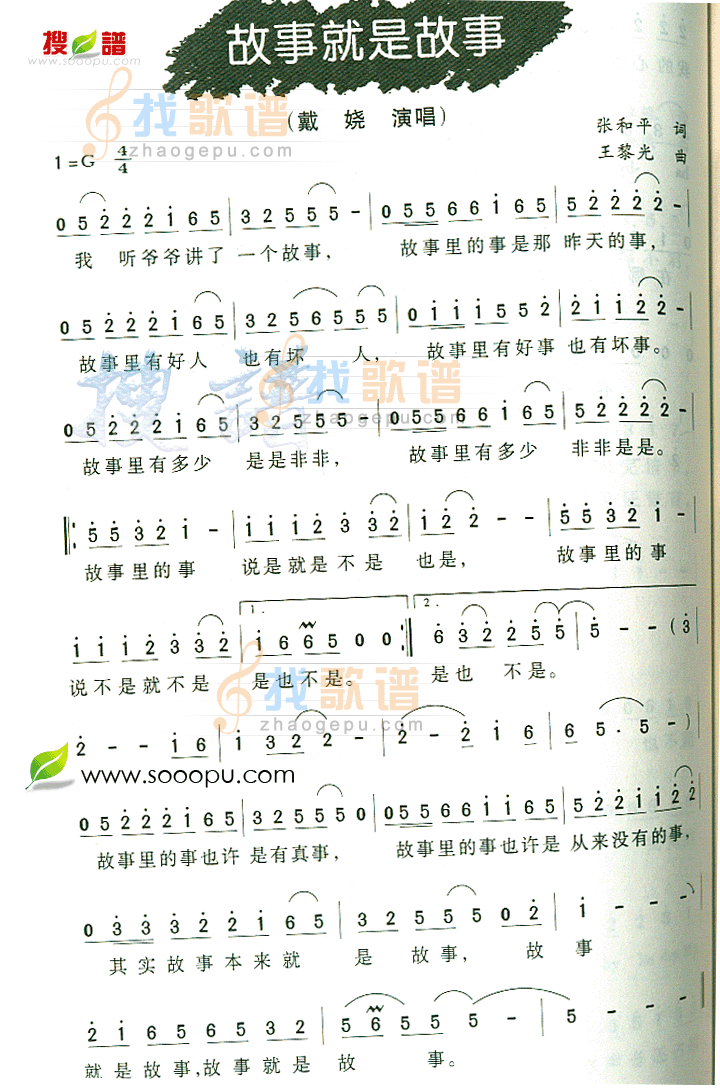 搜谱
www.sooopu.com
故事就是故事
(戴 娆 演唱)
张和平 词
1=G 4/4
王黎光 曲
找歌谱
zhaogepu.com
0 5 2 2 2 1 6 5 | 3 2 5 5 5 - | 0 5 5 6 6 1 6 5 | 5 2 2 2 2 - |
我 听爷爷讲了 一个故事, 故事里的事是那 昨天的事,
0 5 2 2 2 1 6 5 | 3 2 5 6 5 5 5 | 0 1 1 1 5 5 2 | 2 1 1 2 2 - |
故事里有好人 也有坏 人, 故事里有好事 也有坏事。
搜谱
找歌谱
zhaogepu.com
0 5 2 2 2 1 6 5 | 3 2 5 5 5 - | 0 5 5 6 6 1 6 5 | 5 2 2 2 2 - |
故事里有多少 是是非非, 故事里有多少 非非是是。
|: 5 5 3 2 1 - | 1 1 1 2 3 3 2 | 1 2 2 - - | 5 5 3 2 1 - |
故事里的事 说是就是不是 也是, 故事里的事
1. 2.
1 1 1 2 3 3 2 | 1 6 6 5 0 0 :| 6 3 2 2 5 5 | 5 - - (3
说不是就不是 是也不是。 是也 不是。
找歌谱
zhaogepu.com
2 - - 1 6 | 1 3 2 2 - | 2 - 2 1 6 | 6 5 . 5 - )
www.sooopu.com
0 5 2 2 2 1 6 5 | 3 2 5 5 5 0 | 0 5 5 6 6 1 1 6 5 | 5 2 2 1 1 2 2
故事里的事也许 是有真事, 故事里的事也许是 从来没有的事,
0 3 3 3 2 2 1 6 5 | 3 2 5 5 5 0 2 | 1 - - - |
其实故事本来就 是 故事, 故 事
2 1 6 5 6 5 3 2 | 5 6 5 5 - | 5 - - -
就是故事,故事就是 故 事。